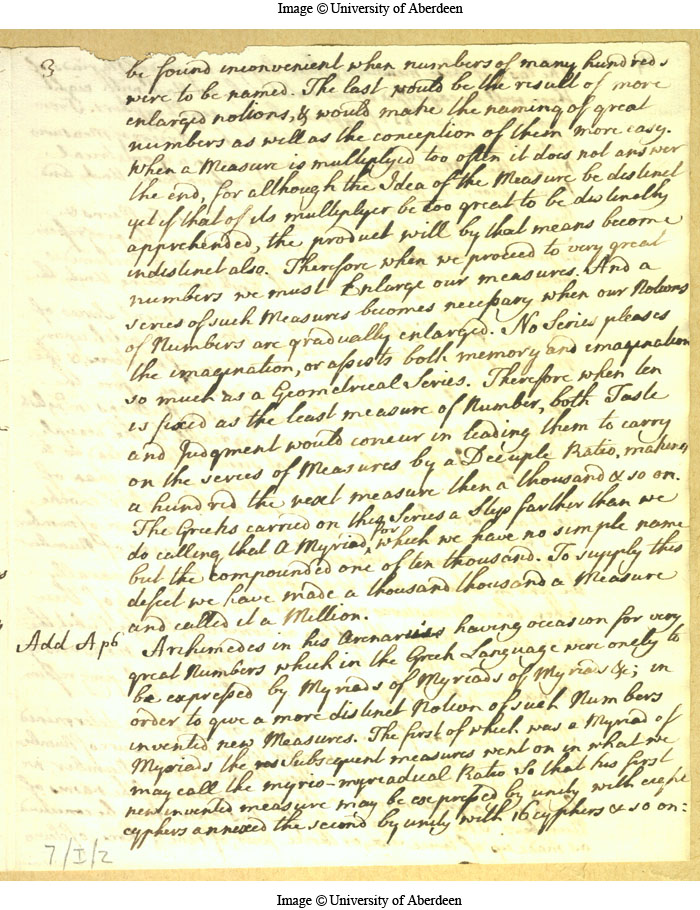 Image © University of Aberdeen
3
be found inconvenient when numbers of many hundreds
were to be named. The last would be the result of more
enlarged notions, & would make the naming of great
numbers as well as the conception of them more easy.
When a Measure is multiplyed too often it does not answer
the end, for although the Idea of the Measure be distinct
yet if that of its multiplyer be too great to be distinctly
apprehended, the product will by that means become
indistinct also. Therefore when we proceed to very great
numbers we must Enlarge our measures. And a
series of such Measures becomes necessary when our Notions
of Numbers are gradually enlarged. No Series pleases
the imagination, or assists both memory and imagination
so much as a Geometrical Series. Therefore when ten
is fixed as the least measure of Number, both Taste
and Judgment would concur in leading them to carry
on the series of Measures by a Decuple Ratio, making
a hundred the next measure then a thousand & so on.
The Greeks carried on this Series a Step farther than we
do calling that a Myriad, for which we have no simple name
but the compounded one of ten thousand. To supply this
defect we have made a thousand thousand a Measure
and called it a Million.
Add A p6
Archimedes in his Arenarius having occasion for very
great Numbers which in the Greek Language were onely to
be expressed by Myriads of Myriads of Myriads &c; in
order to give a more distinct Notion of such Numbers
invented new Measures. The first of which was a Myriad of
Myriads the Subsequent measures went on in what we
may call the myrio-myriadical Ratio So that his first
new invented measure may be expressed by unity with eight
cyphers annexed the second by unity with 16 cyphers & so on:
7/I/2
Image © University of Aberdeen